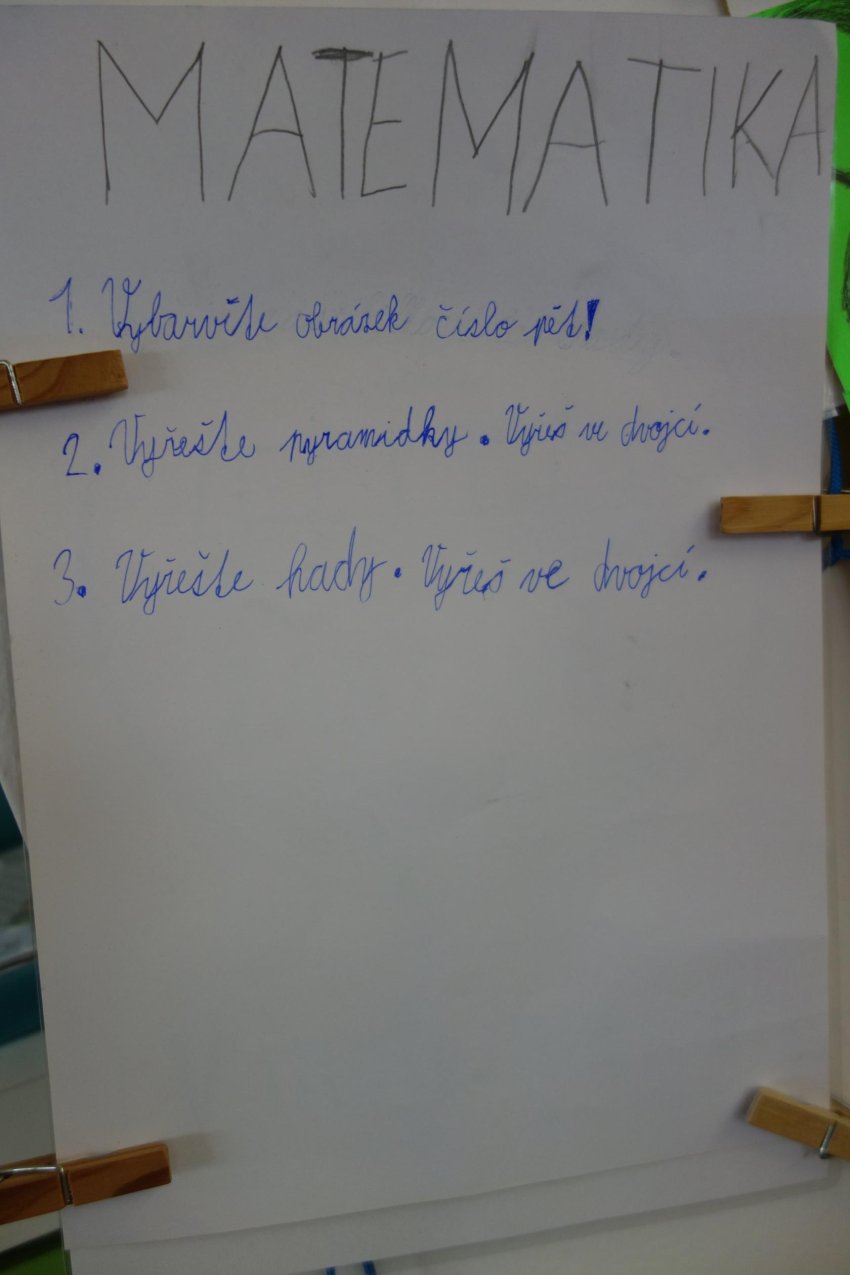 MATEMATIKA
1. Vybarvěte obrázek číslo pět!
2. Vyřešte pyramidky. Vyřeš ve dvojcí.
3. Vyřešte hady. Vyřeš ve dvojcí.